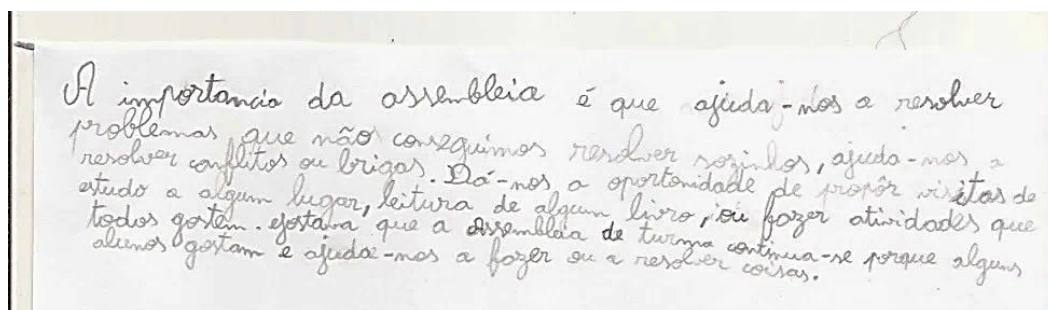 A importancia da assembleia é que ajuda-nos a resolver
problemas que não conseguimos resolver sozinhos, ajuda-nos a
resolver conflitos ou brigas. Dá-nos a oportonidade de propôr visitas de
estudo a algum lugar, leitura de algum livro, ou fazer atividades que
todos gostem. gostava que a assembleia de turma continua-se porque alguns
alunos gostam e ajuda-nos a fazer ou a resolver coisas.